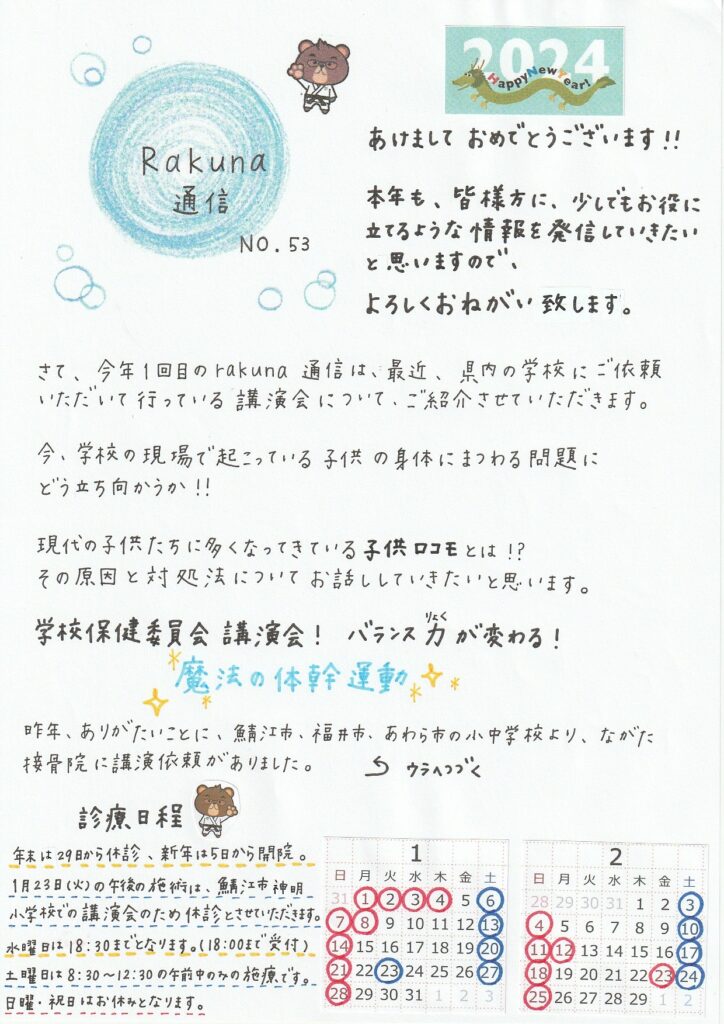 Rakuna
通信
NO. 53
2024
Happy New Year!
あけまして おめでとうございます!!
本年も、皆様方に、少しでもお役に
立てるような情報を発信していきたい
と思いますので、
よろしくおねがい致します。
さて、今年1回目のrakuna 通信は、最近、県内の学校にご依頼
いただいて行っている講演会について、ご紹介させていただきます。
今、学校の現場で起こっている子供の身体にまつわる問題に
どう立ち向かうか!!
現代の子供たちに多くなってきている子供ロコモとは!?
その原因と対処法についてお話ししていきたいと思います。
学校保健委員会 講演会! バランス力が変わる!
りょく
魔法の体幹運動
昨年、ありがたいことに、鯖江市、福井市、あわら市の小中学校より、ながた
接骨院に講演依頼がありました。
ウラへつづく
診療日程
年末は29日から休診、新年は5日から開院。
1月23日(火)の午後の施術は、鯖江市神明
小学校での講演会のため休診とさせていただきます。
水曜日は18:30までとなります。(18:00まで受付)
土曜日は8:30〜12:30の午前中のみの施療です。
日曜・祝日はお休みとなります。
1
日 月 火 水 木 金 土
31 1 2 3 4 5 6
7 8 9 10 11 12 13
14 15 16 17 18 19 20
21 22 23 24 25 26 27
28 29 30 31 1 2 3
2
日 月 火 水 木 金 土
28 29 30 31 1 2 3
4 5 6 7 8 9 10
11 12 13 14 15 16 17
18 19 20 21 22 23 24
25 26 27 28 29 1 2